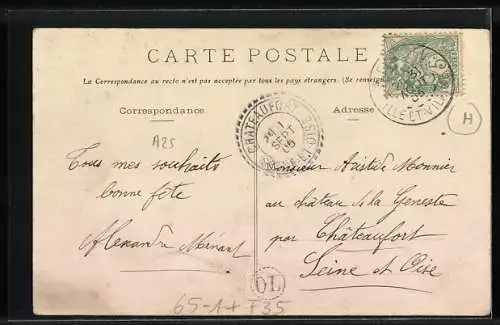 CARTE POSTALE
La Correspondance au recto n'est pas acceptée par tous les pays étrangers. (Se renseign
Correspondance
Adresse
CHATEAUFORT
1
SEPT
06
SEINE-ET-OISE
H
A25
Tous mes souhaits
bonne fête
Alexandre Ménard
Monsieur Aristide Monnier
au château de la Geneste
par Châteaufort
Seine et Oise
ILLE-ET-VIL
OL
65-1+ F35